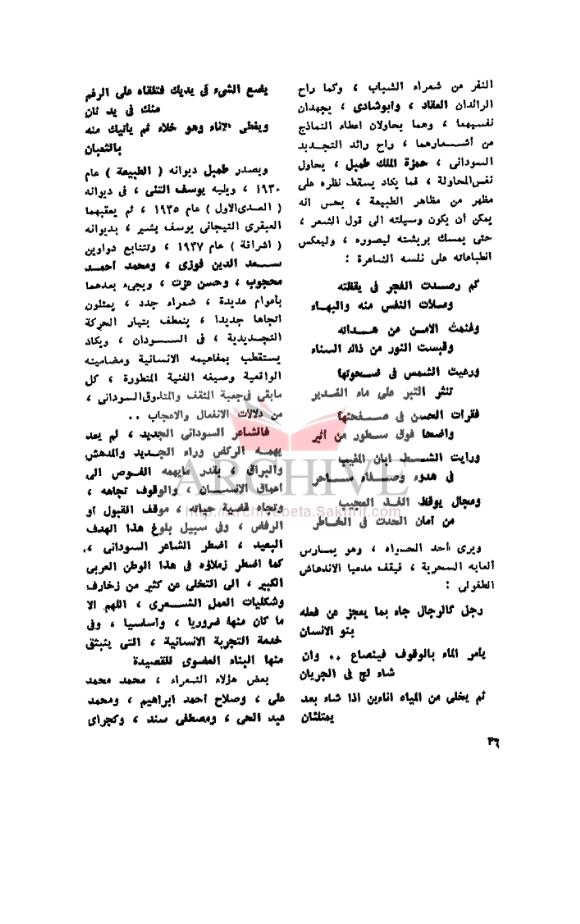 النفر من شعراء الشباب ، وكما راح
الرائدان العقاد ، وأبوشادي ، يجهدان
نفسيهما ، وهما يحاولان اعطاء النماذج
من أشعارهما ، راح رائد التجديد
السوداني ، حمزة الملك طمبل ، يحاول
نفس المحاولة ، فما يكاد يسقط نظره على
مظهر من مظاهر الطبيعة ، يحس انه
يمكن أن يكون وسيلته الى قول الشعر ،
حتى يمسك بريشته ليصوره ، وليعكس
انطباعاته على نفسه الشاعرة :
كم رصدت الفجر في يقظته
وملأت النفس منه والبهاء
وغنمت الامن من هدأته
وقبست النور من ذاك السناء
ورعيت الشمس في ضحوتها
تنثر التبر على ماء الغدير
فقرأت الحسن في صفحتها
واضحا فوق سطور من أثير
ورأيت الشط ابان المغيب
في هدوء وصفاء ساحر
ومجال يوقظ الفذ المجيب
من أمان الحدث في الخاطر
ويرى أحد الحواه ، وهو يمارس
ألعابه السحرية ، فيقف مدعيا الاندهاش
الطفولي :
رجل كالرجال جاء بما يعجز عن فعله
بنو الانسان
يأمر الماء بالوقوف فينصاع .. وان
شاء لج في الجريان
ثم يخلى من المياه اناءين اذا شاء بعد
يمتلئان
يضع الشيء في يديك فتلقاه على الرغم
منك في يد ثان
ويغطى الإناء وهو خلاء ثم يأتيك منه
بالثعبان
ويصدر طمبل ديوانه ( الطبيعة ) عام
١٩٣٠ ، ويليه يوسف التني ، في ديوانه
( الصدى الاول ) عام ١٩٣٥ ، ثم يعقبهما
العبقري التيجاني يوسف بشير ، بديوانه
( اشراقة ) عام ١٩٣٧ ، وتتتابع دواوين
سعد الدين فوزي ، ومحمد أحمد
محجوب ، وحسن عزت ، ويجيء بعدهما
بأعوام عديدة ، شعراء جدد ، يمثلون
اتجاها جديدا ، ينعطف بتيار الحركة
التجديدية ، في السودان ، ويكاد
يستقطب بمفاهيمه الانسانية ومضامينه
الواقعية وصيغه الفنية المتطورة ، كل
مابقى في جعبة المثقف والمتذوق السوداني ،
من دلالات الانفعال والاعجاب ..
فالشاعر السوداني الجديد ، لم يعد
يهمه الركض وراء الجديد والمدهش
والبراق ، بقدر مايهمه الغوص الى
أعماق الانسان ، والوقوف تجاهه ،
وتجاه قضية حياته ، موقف القبول أو
الرفض ، وفي سبيل بلوغ هذا الهدف
البعيد ، اضطر الشاعر السوداني ،
كما اضطر زملاؤه في هذا الوطن العربي
الكبير ، الى التخلى عن كثير من زخارف
وشكليات العمل الشعري ، اللهم الا
ما كان منها ضروريا ، وأساسيا ، وفي
خدمة التجربة الانسانية ، التي ينبثق
منها البناء العضوي للقصيدة
بعض هؤلاء الشعراء ، محمد محمد
على ، وصلاح أحمد ابراهيم ، ومحمد
عبد الحي ، ومصطفى سند ، وكجراى
٣٦
ARCHIVE
http://Archivebeta.Sakhrit.com